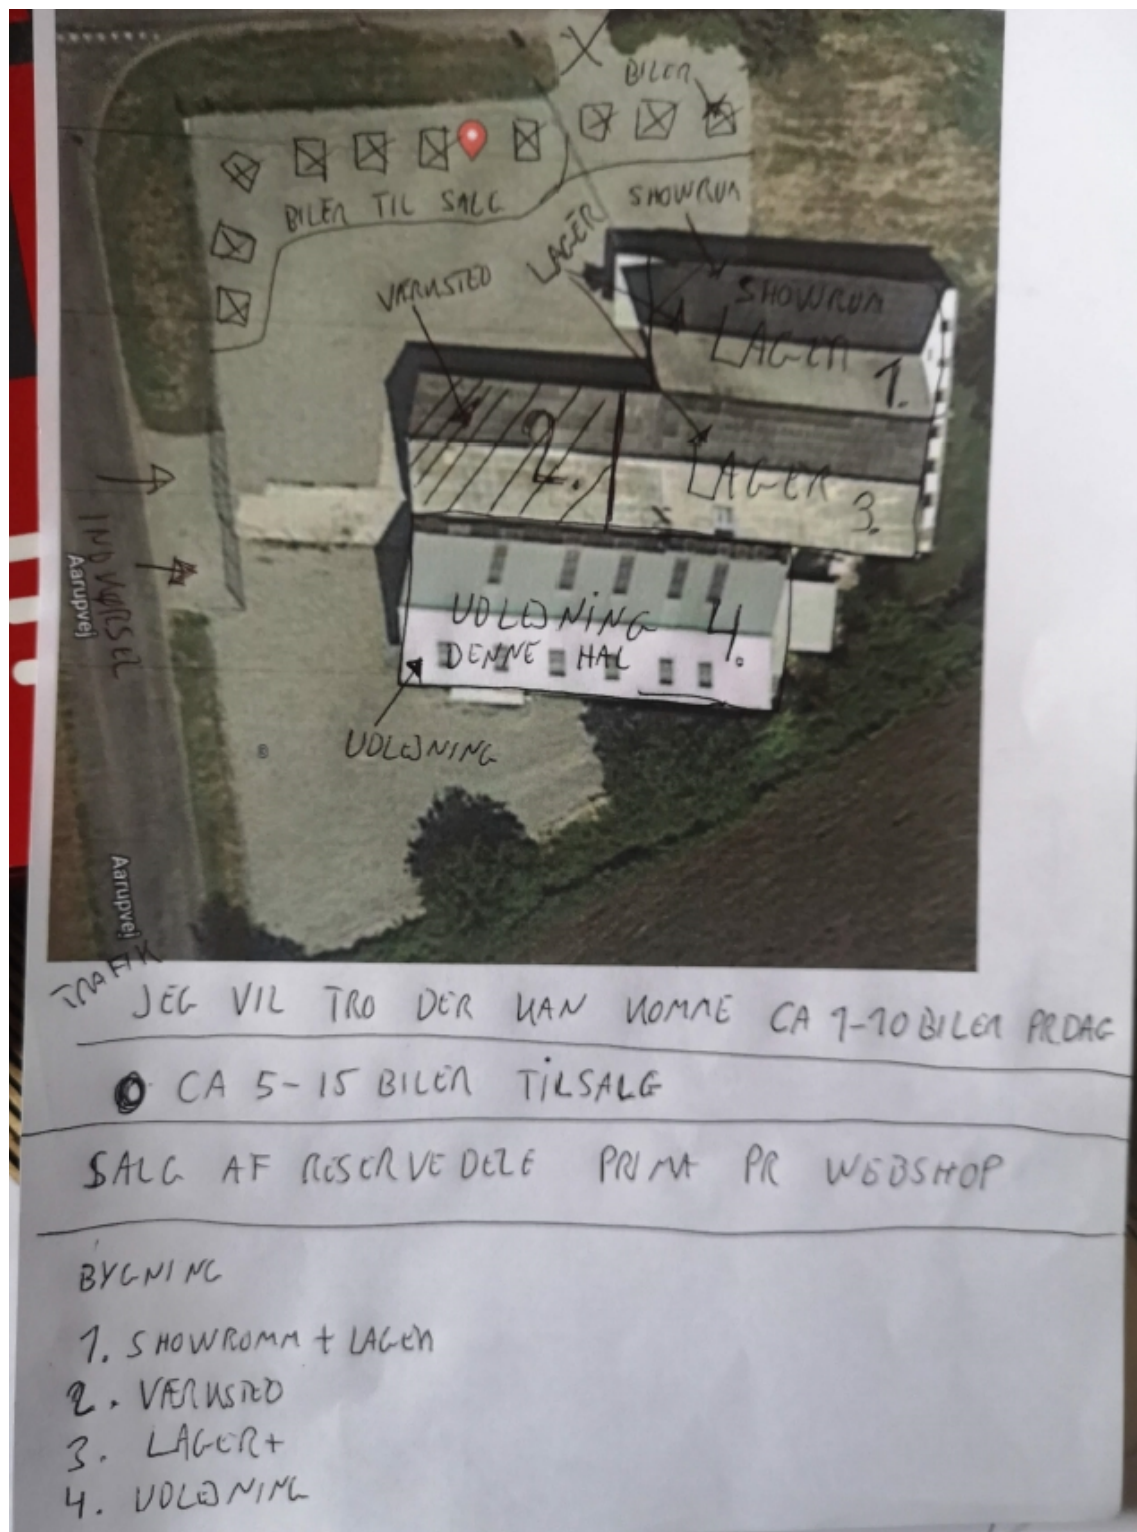 BILER
BILER TIL SALG
SHOWRUM
LAGER
VÆRKSTED
SHOWRUM
LAGER
1.
2.
LAGER
3.
INDKØRSEL
Aarupvej
UDLEJNING 4.
DENNE HAL
UDLEJNING
Aarupvej
TRAFIK
JEG VIL TRO DER KAN KOMME CA 1-10 BILER PR DAG
CA 5-15 BILER TIL SALG
SALG AF RESERVEDELE PRIMA PR WEBSHOP
BYGNING
1. SHOWROMM + LAGER
2. VÆRKSTED
3. LAGER+
4. UDLEJNING